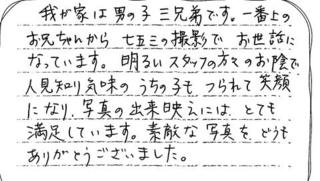 我が家は男の子三兄弟です。一番上の
お兄ちゃんから七五三の撮影でお世話に
なっています。明るいスタッフの方々のお陰で
人見知り気味のうちの子もつられて笑顔
になり、写真の出来映えにはとても
満足しています。素敵な写真を、どうも
ありがとうございました。